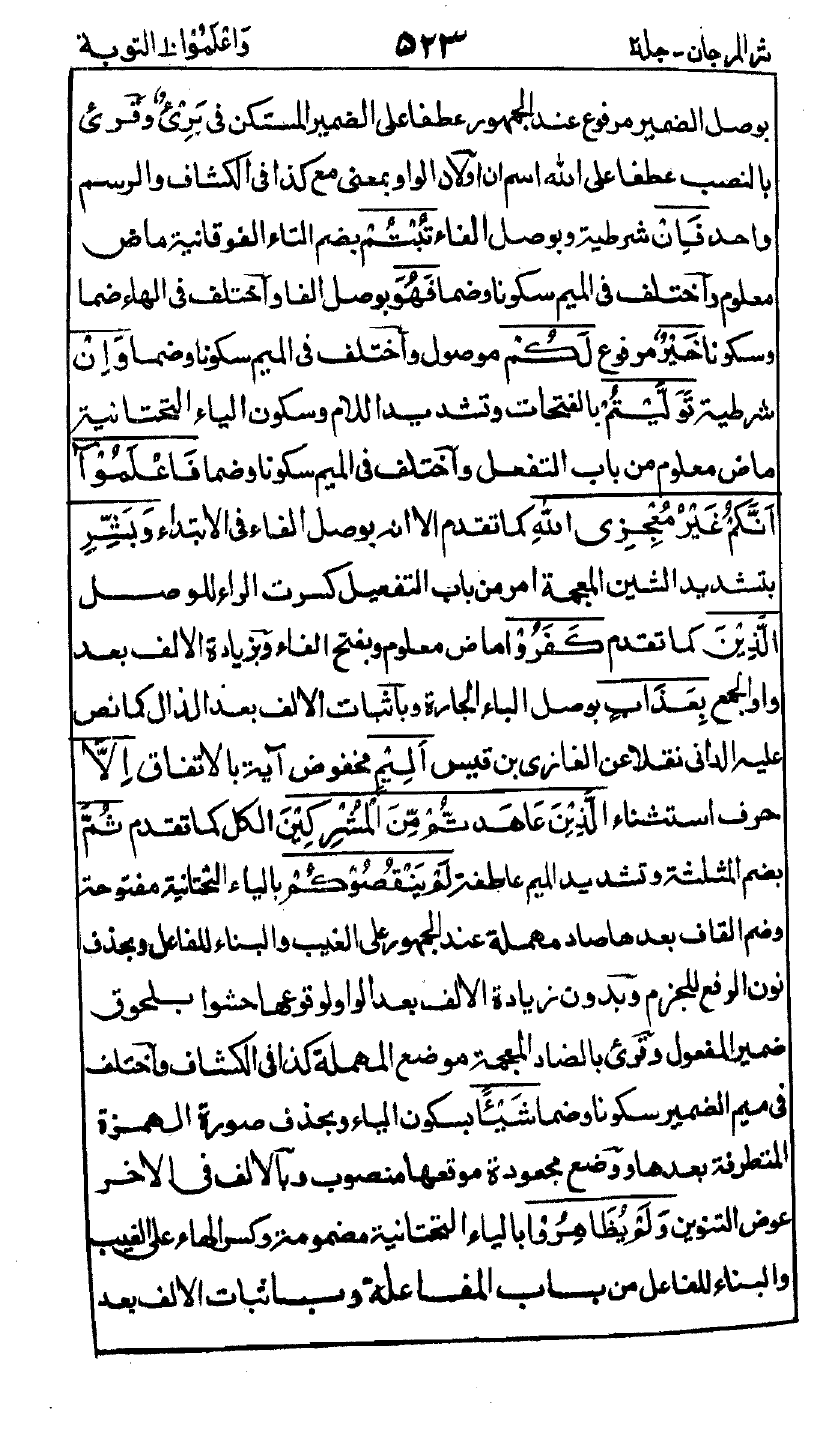 نثر المرجان - جلد٢ ٥٢٣ واعلموا۱۰ التوبة
بوصل الضمير مرفوع عند الجمهور عطفا على الضمير المستكن فى بَرِئٌ وقرئ
بالنصب عطفا على الله اسم ان اولان الواو بمعنى مع كذا فى الكشاف والرسم
واحد فَاِنْ شرطية وبوصل الفاء تُبْتُمْ بضم التاء الفوقانية ماض
معلوم وآختلف فى الميم سكونا وضما فَهُوَ بوصل الفا وآختلف فى الهاء ضما
وسكونا خَيْرٌ مرفوع لَّكُمْ موصول وآختلف فى الميم سكونا وضما وَاِنْ
شرطية تَوَلَّيْتُمْ بالفتحات وتشديد اللام وسكون الياء التحتانية
ماض معلوم من باب التفعل وآختلف فى الميم سكونا وضما فَاعْلَمُوْآ
اَنَّكُمْ غَيْرُ مُعْجِزِى اللهِ كما تقدم الا انه بوصل الفاء فى الابتداء وَبَشِّرِ
بتشديد الشين المعجمة امر من باب التفعيل كسرت الراء للوصل
الَّذِيْنَ كما تقدم كَفَرُوْا ماض معلوم وبفتح الفاء وبزيادة الالف بعد
واو الجمع بِعَذَابٍ بوصل الباء الجارة وبآثبات الالف بعد الذال كما نص
عليه الدانى نقلا عن الغازى بن قيس اَلِيْمٍ مخفوض آية بالاتفاق اِلَّا
حرف استثناء الَّذِيْنَ عَاهَدتُّمْ مِّنَ الْمُشْرِكِيْنَ الكل كما تقدم ثُمَّ
بضم المثلثة وتشديد الميم عاطفة لَمْ يَنْقُصُوْكُمْ بالياء التحتانية مفتوحة
وضم القاف بعدها صاد مهملة عند الجمهور على الغيب والبناء للفاعل وبحذف
نون الرفع للجزم وبدون زيادة الالف بعد الواو لوقوعها حشوا بلحوق
ضمير المفعول وقرئ بالضاد المعجمة موضع المهملة كذا فى الكشاف وآختلف
فى ميم الضمير سكونا وضما شَيْئًا بسكون الياء وبحذف صورة الهمزة
المتطرفة بعدها ووضع مجعودة موقعها منصوب وبآلالف فى الاخر
عوض التنوين وَلَمْ يُظَاهِرُوْا بالياء التحتانية مضمومة وكسر الهاء على الغيب
والبناء للفاعل من باب المفاعلة وباثبات الالف بعد